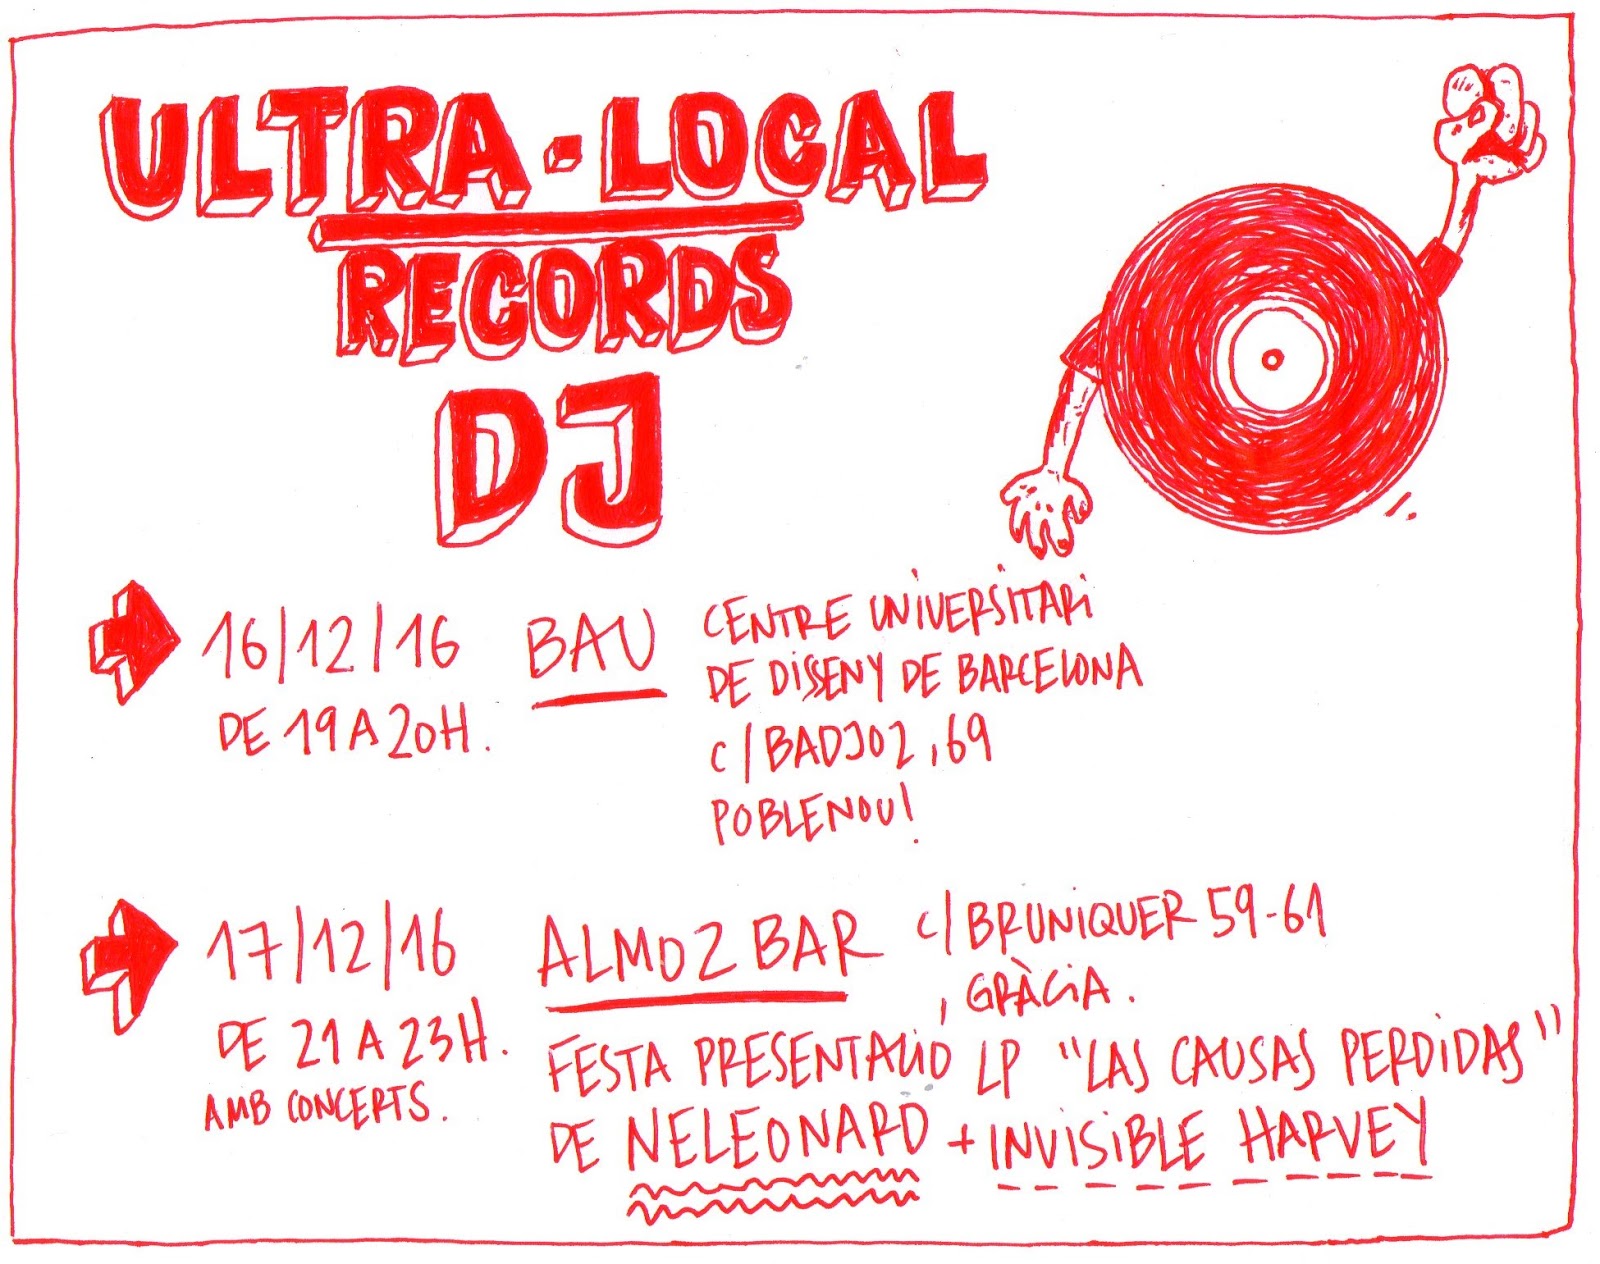 ULTRA·LOCAL
RECORDS
DJ
16/12/16 BAU CENTRE UNIVERSITARI
DE DISSENY DE BARCELONA
DE 19 A 20H.
C/BADJOZ, 69
POBLENOU!
17/12/16 ALMOZ BAR C/BRUNIQUER 59-61
, GRÀCIA.
DE 21 A 23H.
AMB CONCERTS.
FESTA PRESENTACIÓ LP "LAS CAUSAS PERDIDAS"
DE NELEONARD + INVISIBLE HARVEY